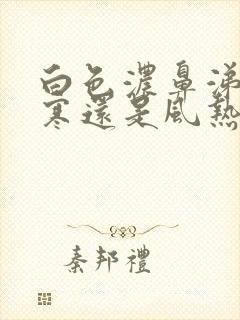 白色濃鼻涕
寒還是風熱
秦邦禮